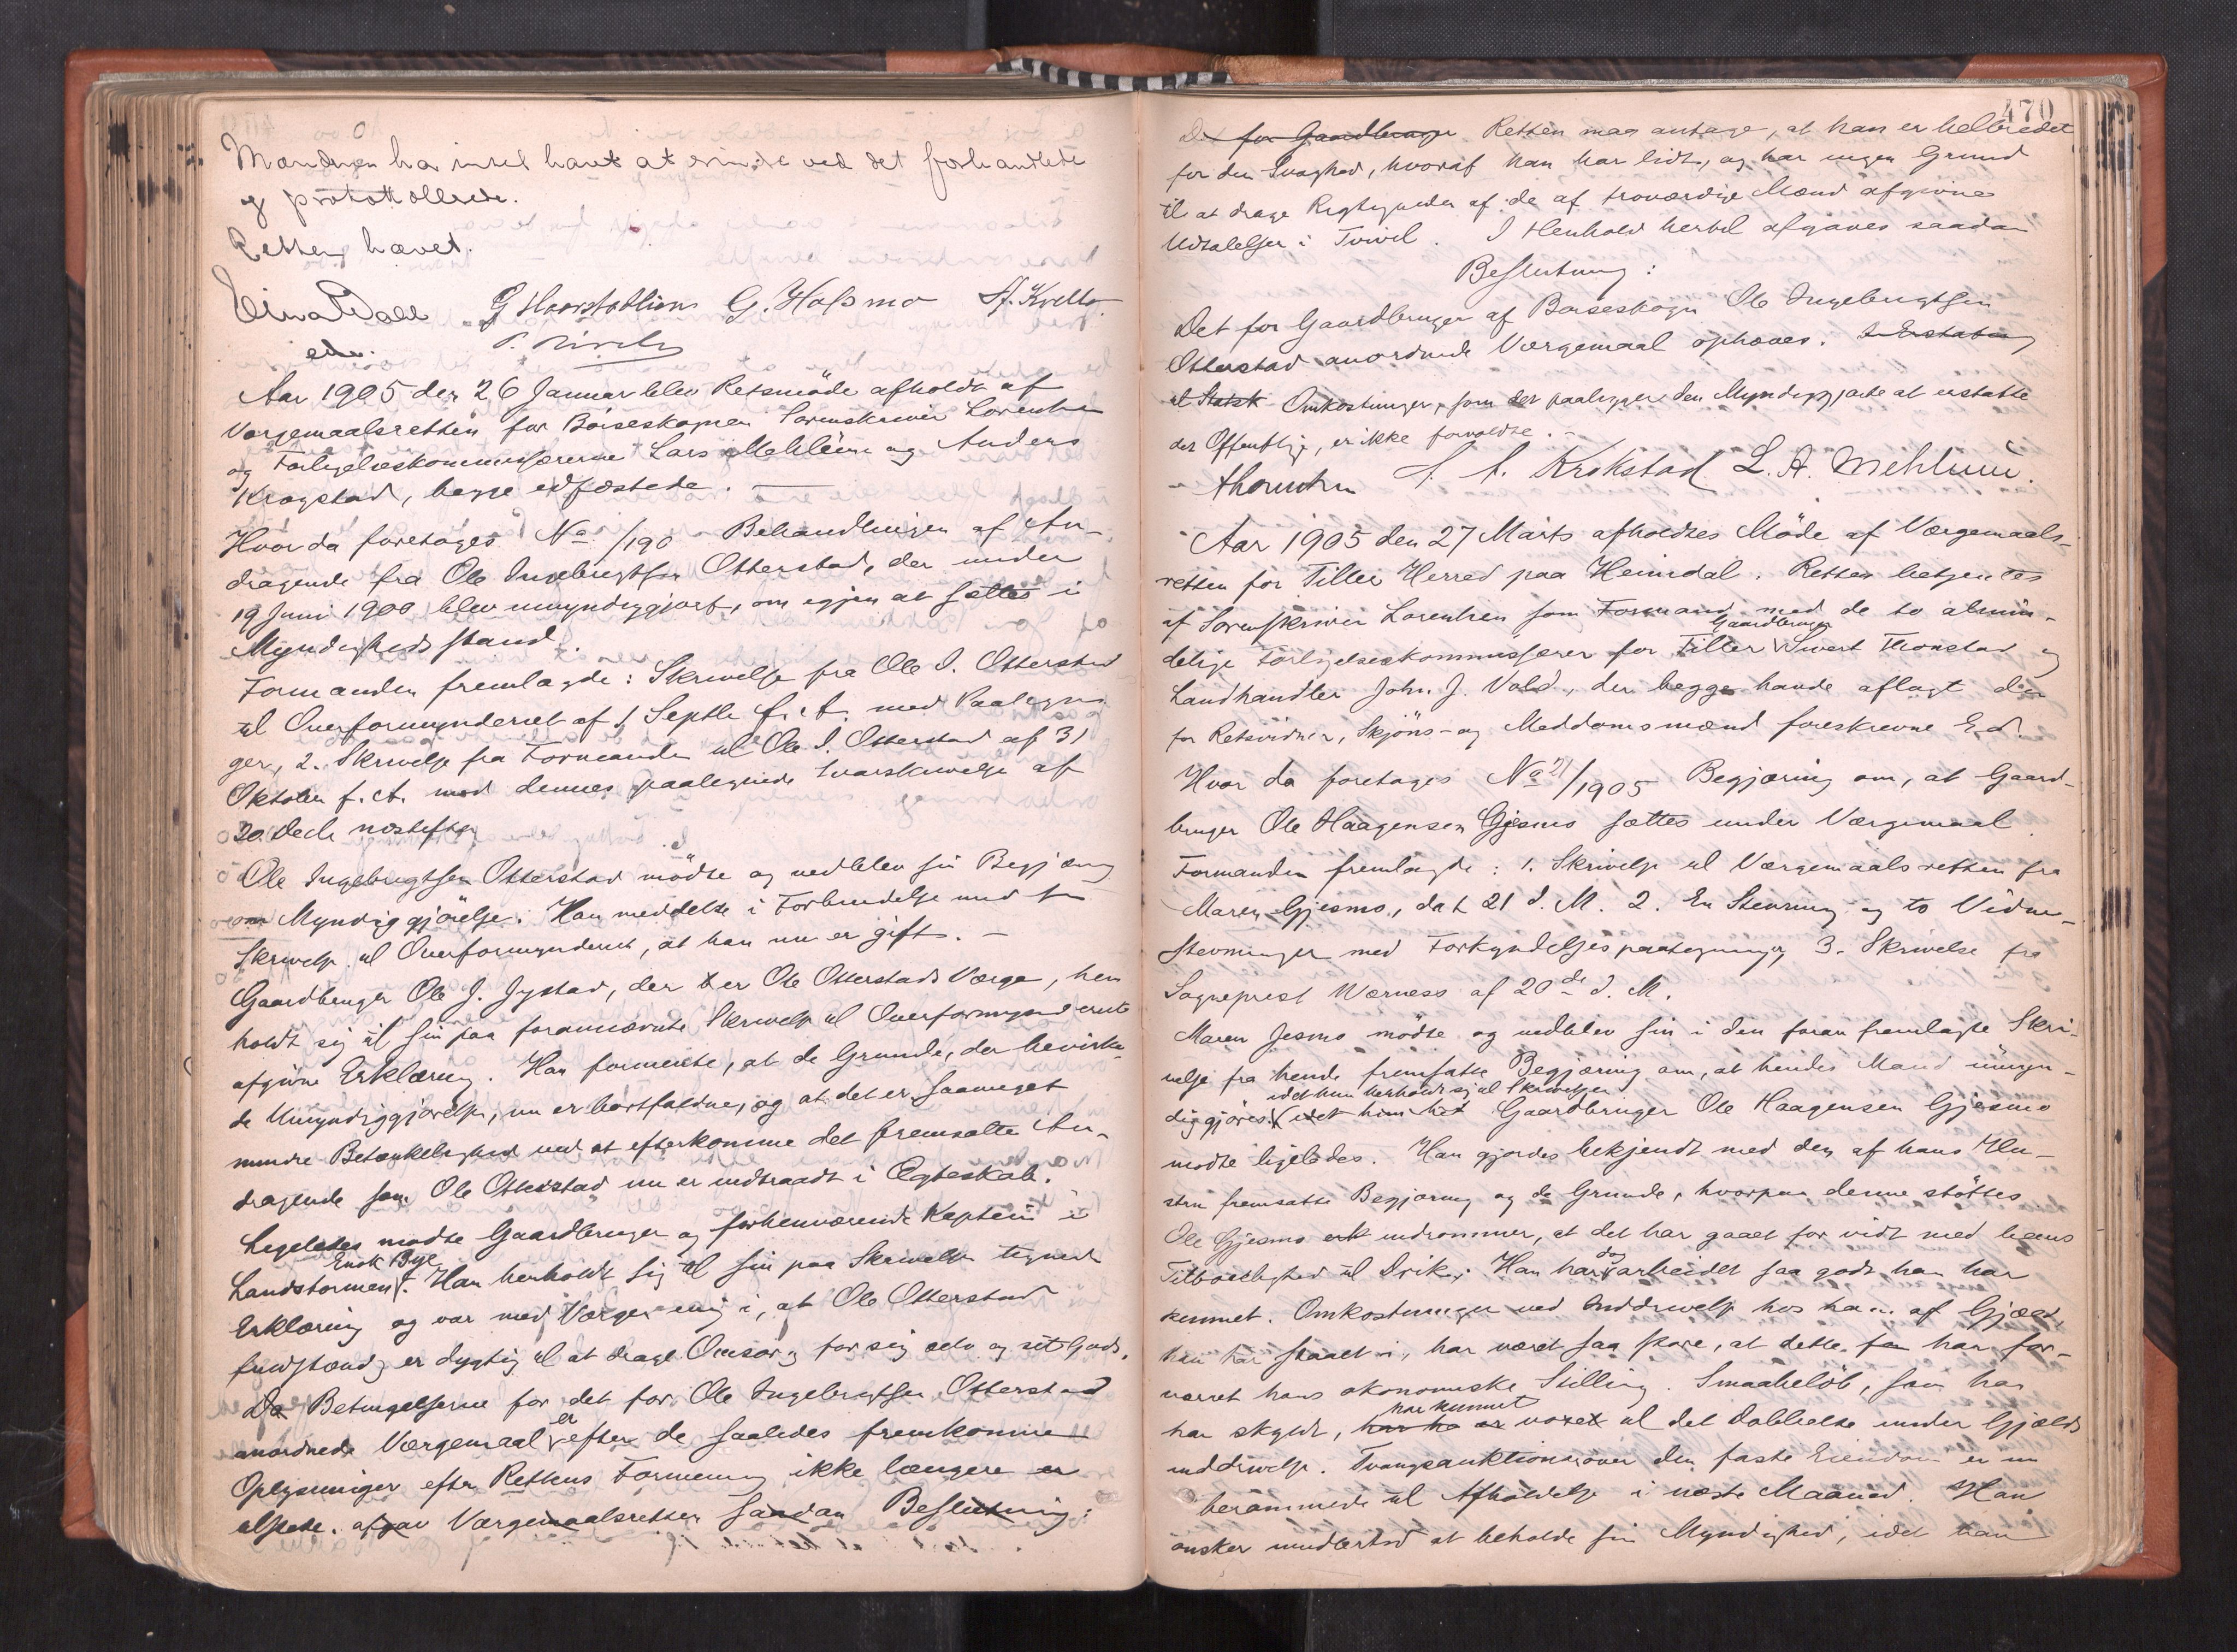 Mændene har intet havt at erindre ved det forhandlede
og protokollerede.
Retten hævet.
Einar Dall G. Haarstadlien G. Hassmo A. Kvello
edsv.
Aar 1905 den 26 Januar blev Retsmöde afholdt af
Værgemaalsretten for Börseskognen Sorenskriver Lorentzen
og Forligelseskommissærerne Lars Mehlum og Anders
Krogstad, begge edfæstede.
Hvor da foretages No /190 Behandlingen af An-
dragende fra Ole Ingebrigtsen Otterstad, der under
19 Juni 1900 blev umyndiggjort, om igjen at sættes i
Myndigheds stand.
Formanden fremlagde: Skrivelse fra Ole I. Otterstad
til Overformynderiet af 1 Septbr f. A. med Paategnin
ger, 2. Skrivelse fra Formanden til Ole I. Otterstad af 31
Oktober f. A. med dennes paategnede Svarskrivelse af
20 Decbr næstefter
Ole Ingebrigtsen Otterstad mödte og vedblev sin Begjæring
om Myndiggjörelse. Han meddelte i Forbindelse med sin
Skrivelse til Overformynderiet, at han nu er gift. -
Gaardbruger Ole J. Jystad, der er Ole Otterstads Værge, hen
holdt sig til sin paa forannævnte Skrivelse til Overformynderiet
afgivne Erklæring. Han formente, at de Grunde, der bevirke-
de Umyndiggjörelsen, nu er bortfaldne, og at det er saameget
mindre Betænkelighed ved at efterkomme det fremsatte An-
dragende som Ole Otterstad nu er indtraadt i Ægteskab.
Ligeledes mödte Gaardbruger og forhenværende Kaptein i
Landstormen Enok Bye. Han henholdt sig til sin paa Skrivelsen tegnede
Erklæring og var med Værgen enig i, at Ole Otterstad
fuldstændig er dygtig til at drage Omsorg for sig selv og sit Gods.
Da Betingelserne for det for Ole Ingebrigtsen Otterstad
anordnede Værgemaal er efter de saaledes fremkomne
Oplysninger efter Rettens Formening ikke længere er
tilstede. afgav Værgemaalsretten saadan Beslutning:
470
Det for Gaardbruger Retten maa antage, at han er helbredet
for den Svaghed, hvoraf han har lidt, og har ingen Grund
til at drage Rigtigheden af de af troværdige Mænd afgivne
Udtalelser i Tvivl. I Henhold hertil afgaves saadan
Beslutning:
Det for Gaardbruger af Börseskogn Ole Ingebrigtsen
Otterstad anordnede Værgemaal ophæves. I Erstatning
til Statsk Omkostninger, som det paaligger den Myndiggjorte at erstatte
det Offentlige, er ikke forvoldte. -
Lorentzen A. A. Krokstad L. A. Mehlum.
Aar 1905 den 27 Marts afholdtes Möde af Værgemaals-
retten for Tiller Herred paa Heimdal. Retten betjentes
af Sorenskriver Lorentzen som Formand med de to almin-
delige Forligelseskommissærer for Tiller Gaardbruger Sivert Thonstad og
Landhandler John J. Vold, der begge havde aflagt den
for Retsvidner, Skjöns- og Meddomsmænd foreskrevne Ed.
Hvor da foretages No 21/1905 Begjæring om, at Gaard-
bruger Ole Haagensen Gjesmo sættes under Værgemaal.
Formanden fremlagde: 1. Skrivelse til Værgemaalsretten fra
Maren Gjesmo, dat 21 d. M. 2. En Stevning og to Vidne-
stevninger med Forkyndelsespaategninger, 3. Skrivelse fra
Sogneprest Wærness af 20de d. M.
Maren Jesmo mödte og vedblev sin i den foran fremlagte Skri-
velse fra hende fremsatte Begjæring om, at hendes Mand umyn-
diggjöres, idet hun henholdt sig til Skrivelsen idet hun het Gaardbruger Ole Haagensen Gjesmo
mödte ligeledes. Han gjordes bekjendt med den af hans Hu-
stru fremsatte Begjæring og de Grunde, hvorpaa denne stöttes.
Ole Gjesmo erk indrömmer, at det har gaaet for vidt med hans
Tilböielighed til Drik. Han har dog arbeidet saa godt han har
kunnet. Omkostninger ved Inddrivelse hos ham af Gjæld,
han har staaet i, har været saa store, at dette har for-
værret hans ökonomiske Stilling. Smaabelöb, som han
har skyldt, har kunnet voxet til det dobbelte under Gjælds
inddrivelse. Tvangsauktion over den faste Eiendom er nu
berammede til Afholdelse i næste Maaned. Han
önsker imidlertid at beholde sin Myndighed, idet han